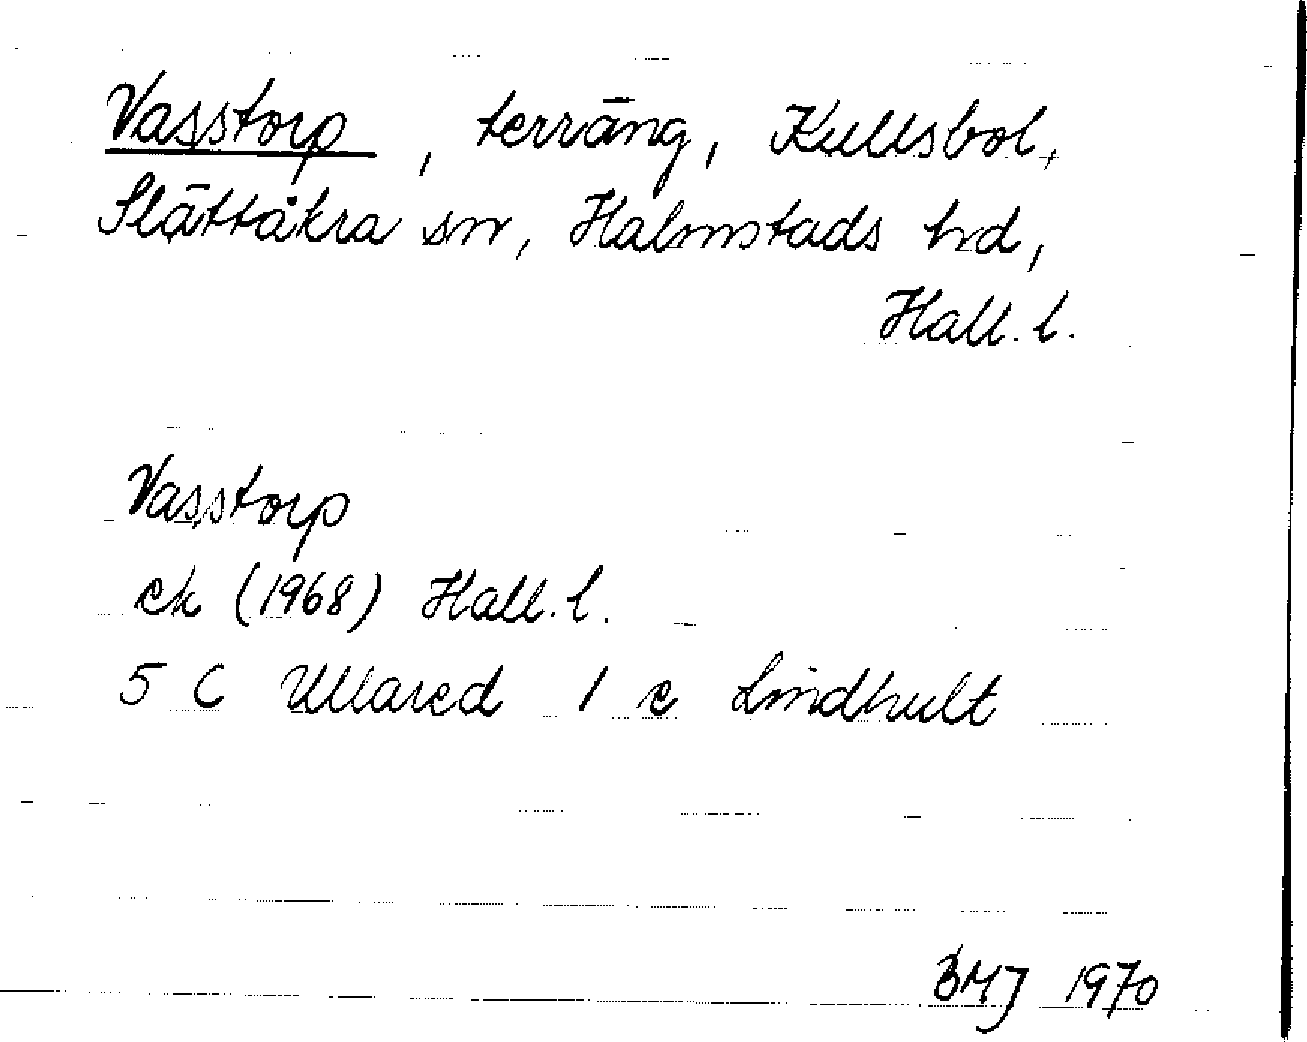 Vasstorp, terräng, Kullsbol,
Slättåkra sn, Halmstads hd,
Hall. l.
Vasstorp
ek (1968) Hall. l.
5 C Ullared 1 e Lindhult
BMJ 1970